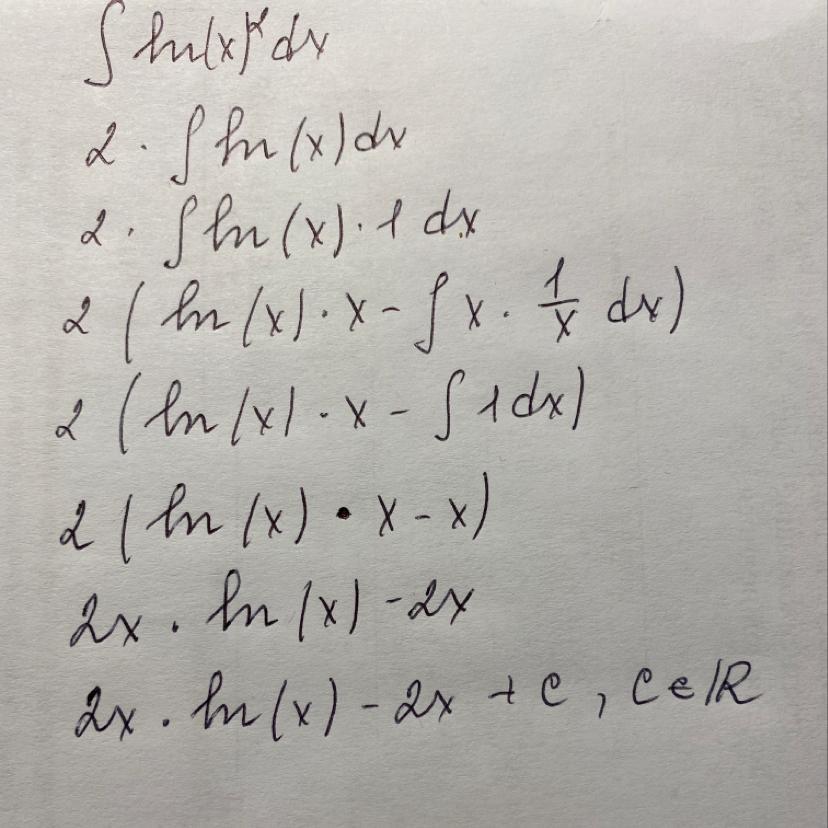 ∫ ln(x)² dx
2 · ∫ ln(x) dx
2 · ∫ ln(x) · 1 dx
2 ( ln(x) · x - ∫ x · 1/x dx)
2 ( ln(x) · x - ∫ 1 dx)
2 ( ln(x) · x - x)
2x · ln(x) - 2x
2x · ln(x) - 2x + C , C ∈ ℝ